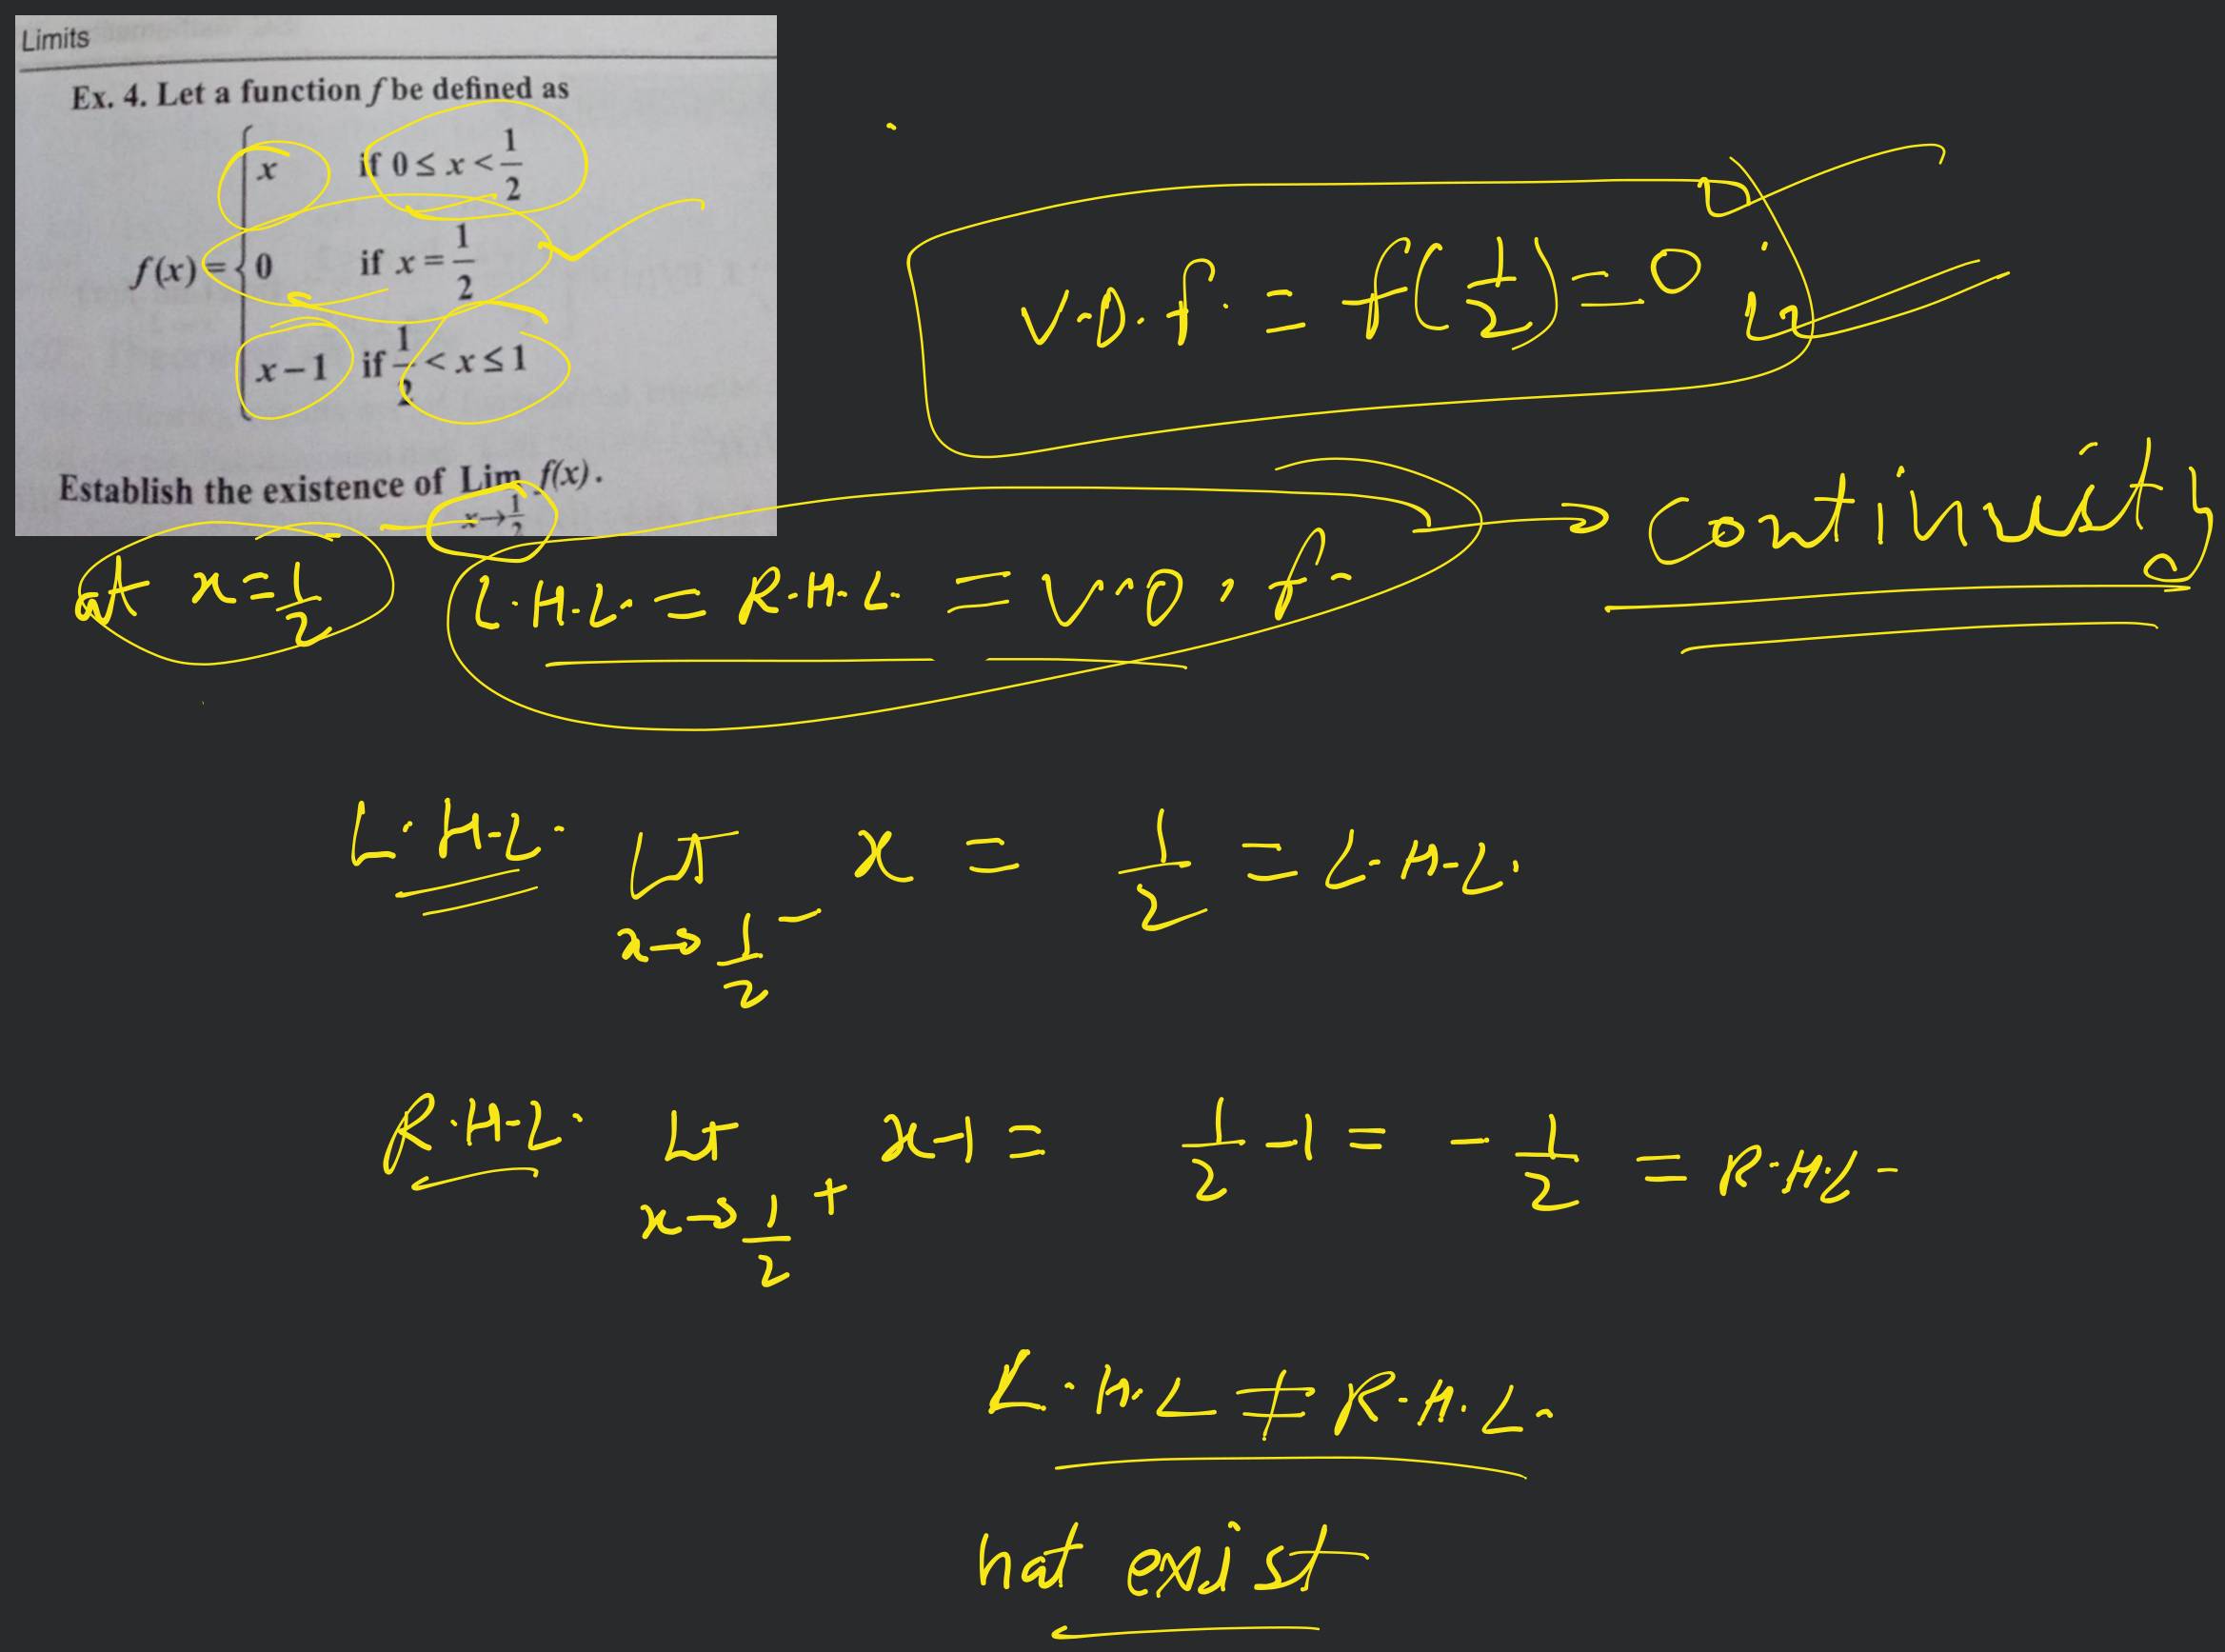 Limits
Ex. 4. Let a function f be defined as
f(x) = { x if 0 ≤ x < 1/2
0 if x = 1/2
x − 1 if 1/2 < x ≤ 1
Establish the existence of Lim x→1/2 f(x).
V.O.f. = f(1/2) = 0
at x = 1/2 L.H.L. = R.H.L. = V.O.f. → continuity
L.H.L. LT x→1/2⁻ x = 1/2 = L.H.L.
R.H.L. LT x→1/2⁺ x-1 = 1/2 -1 = -1/2 = R.H.L.
L.H.L ≠ R.H.L.
not exist